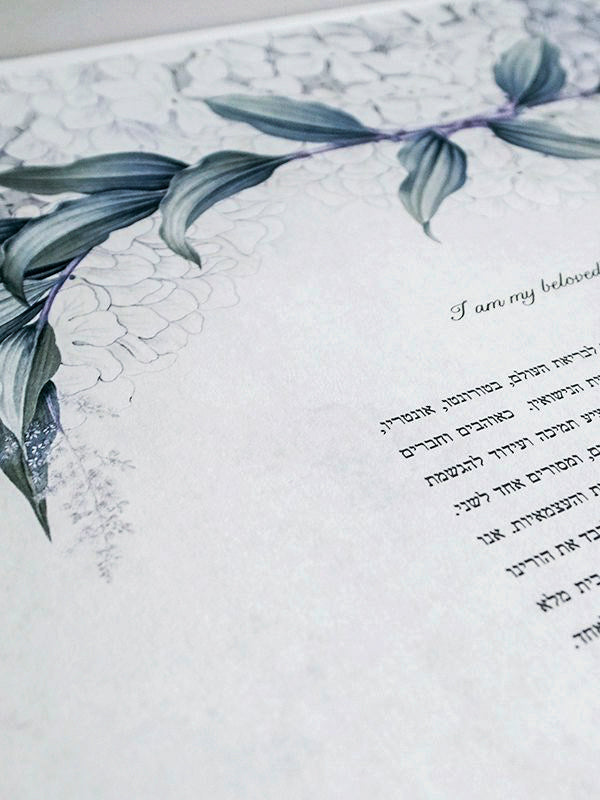 I am my beloved
לבריאת העולם, בטורונטו, אונטריו,
הנישואין. כאוהבים וחברים
תמיכה ועידוד להגשמת
ומסורים אחד לשני.
והעצמאיות. אנו
את הורינו
בית מלא